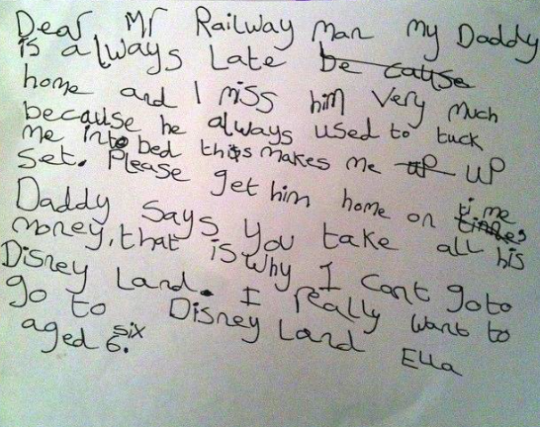 Dear Mr Railway Man My Daddy
is always Late be cause
home and I miss him Very Much
because he always used to tuck
me into bed this makes me up UP
Set. Please get him home on time times
Daddy Says You take all his
money, that is why I cant go to
Disney Land. I really want to
go to Disney Land Ella
aged 6. six